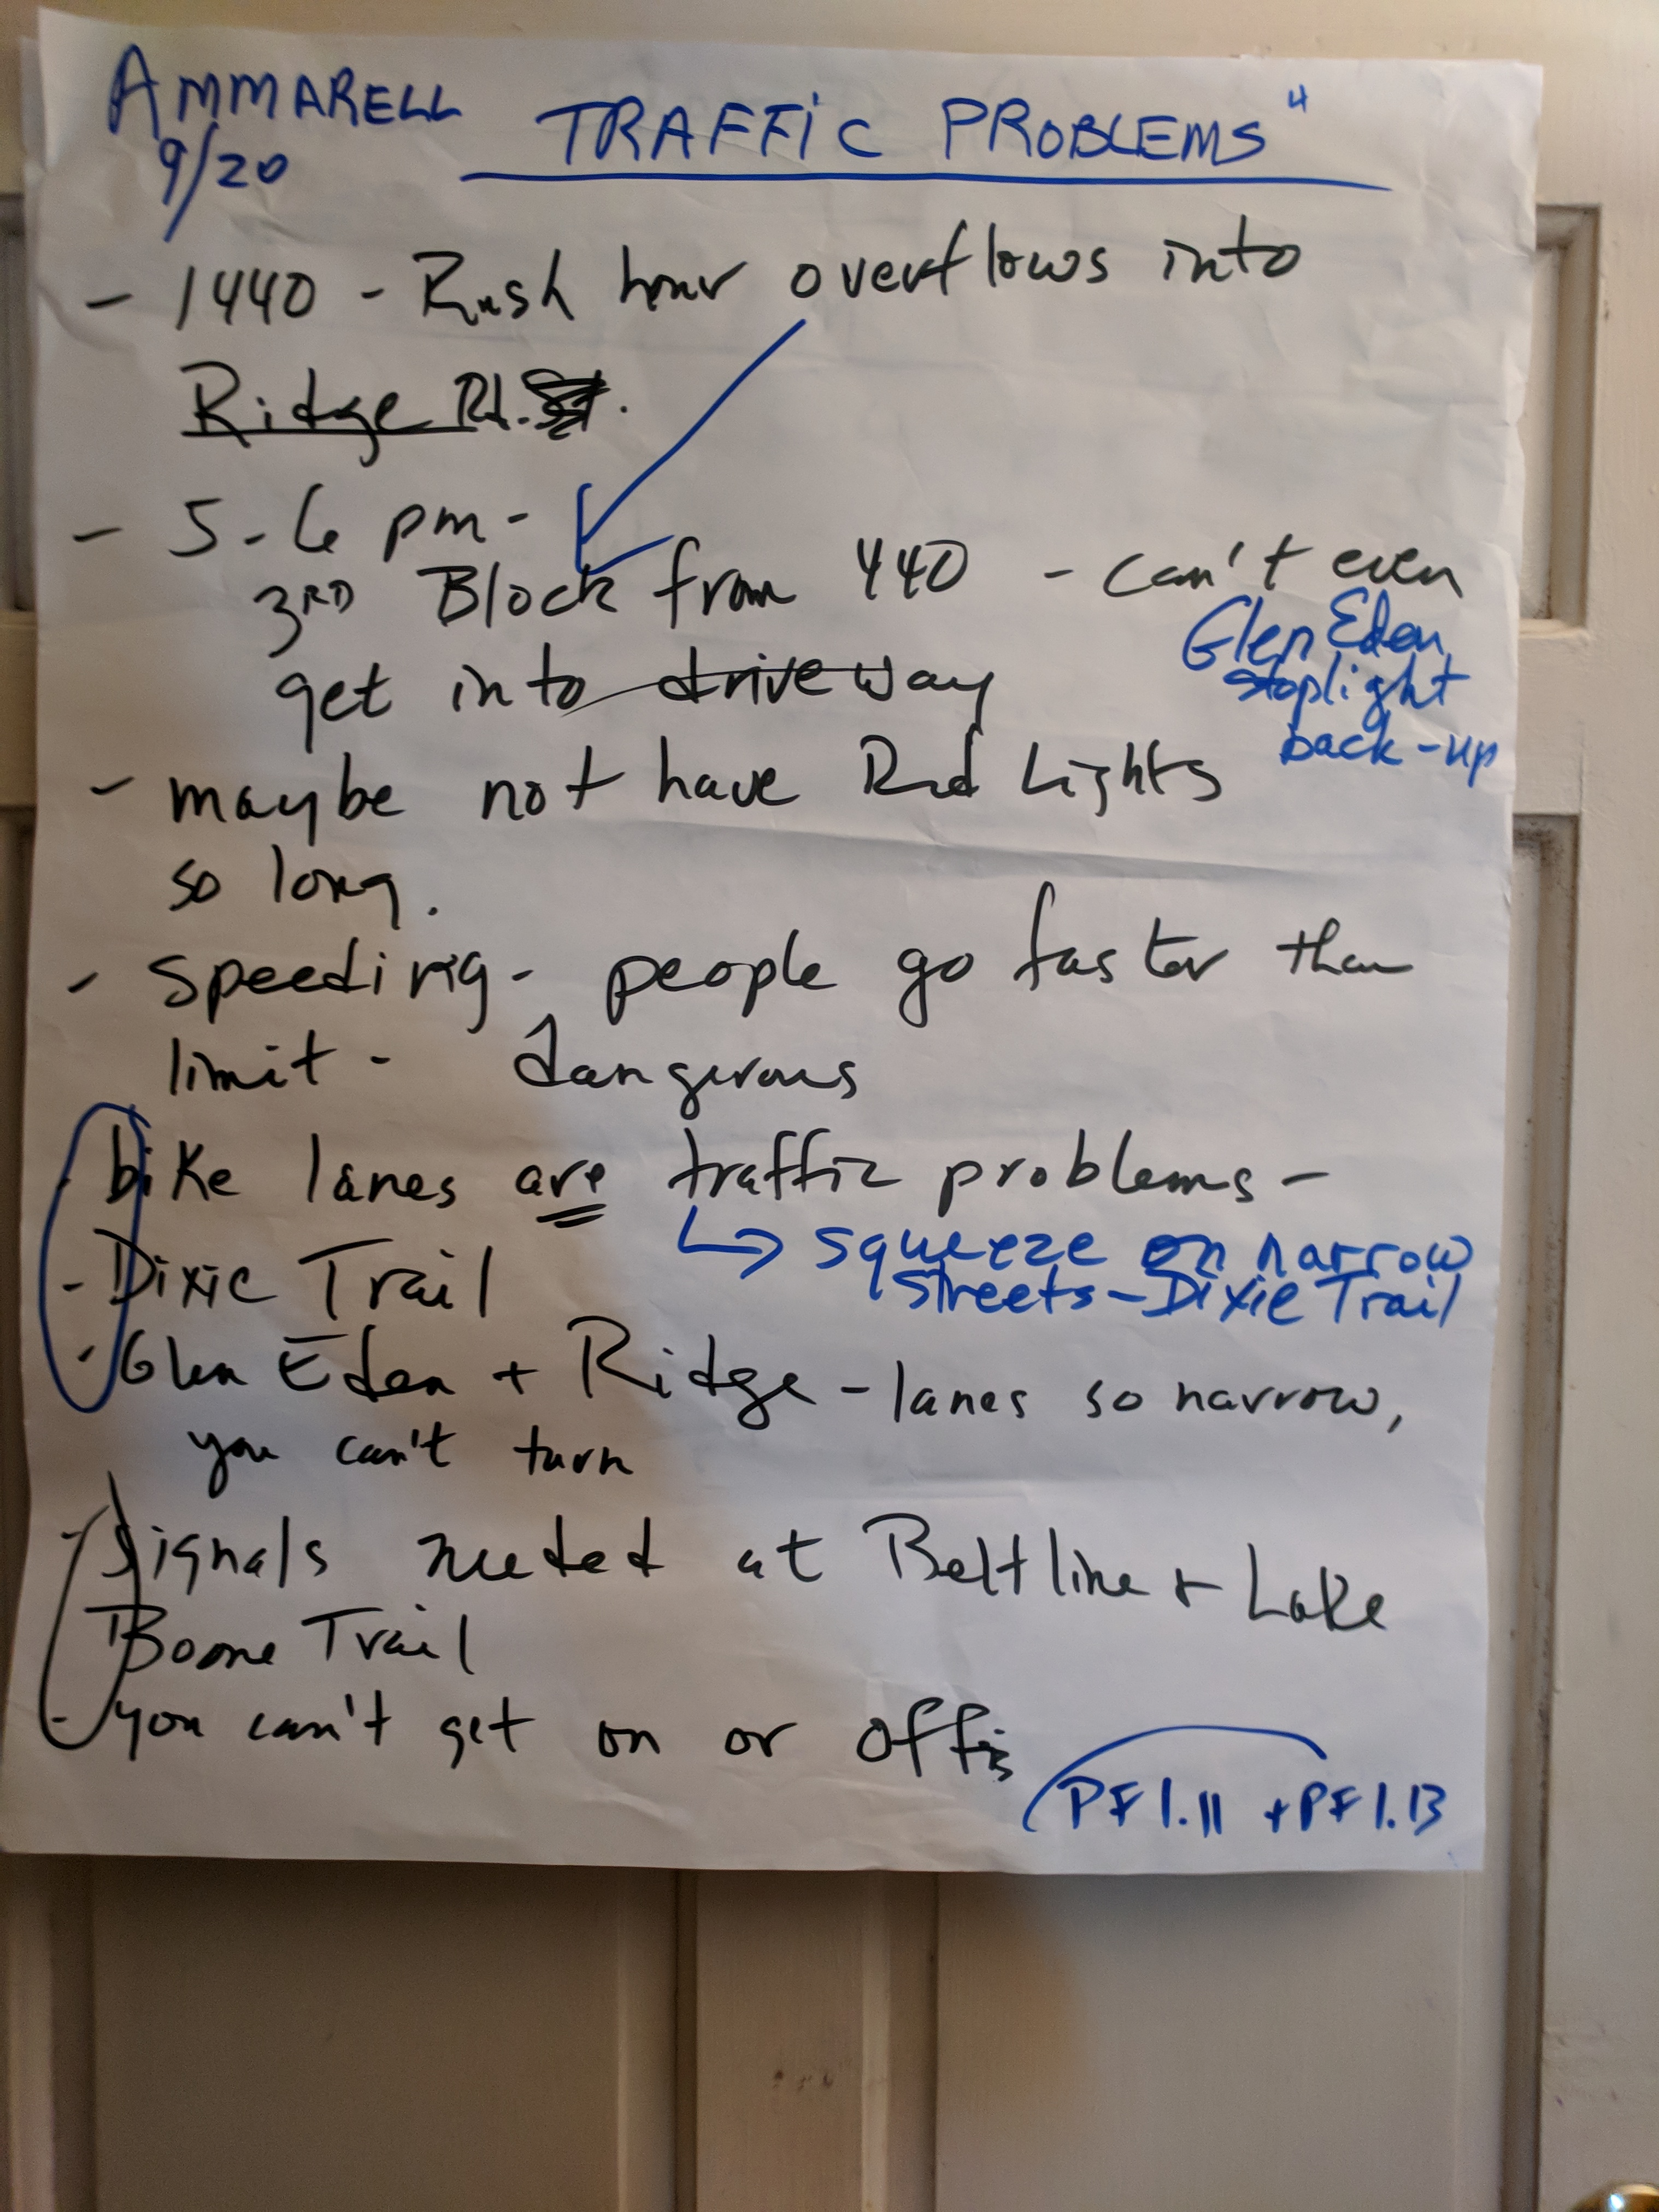 AMMARELL TRAFFiC PROBLEMS "
9/20
- 1440 - Rush hour overflows into
Ridge Rd.
- 5-6 pm-
3RD Block from 440 - can't even
get into driveway
Glen Eden
stoplight
back-up
- maybe not have Red Lights
so long.
- Speeding - people go faster than
limit - dangerous
- bike lanes are traffic problems -
↳ squeeze on narrow
streets - Dixie Trail
- Dixie Trail
- Glen Eden + Ridge - lanes so narrow,
you can't turn
- Signals needed at Beltline + Lake
Boone Trail
- you can't get on or off
PF1.11 + PF1.13